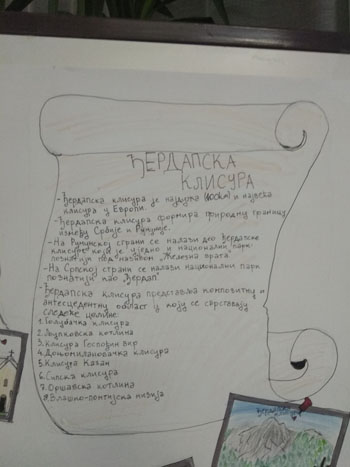 ЂЕРДАПСКА
КЛИСУРА
-Ђердапска клисура је најдужа (100km) и највећа
клисура у Европи.
-Ђердапска клисура формира природну границу
између Србије и Румуније.
-На Румунској страни се налази део Ђердапске
клисуре који је уједно и национални парк
познатији под називом "Железна врата"
-На Српској страни се налази национални парк
познатији као "Ђердап"
-Ђердапска клисура представља композитну и
антецедентну област у коју се сврставају
следеће целине:
1.Голубачка клисура
2.Љупковска котлина
3.Клисура Госпођин вир
4.Доњомилановачка клисура
5.Клисура Казан
6.Сипска клисура
7.Оршавска котлина
8.Влашко-понтијска низија